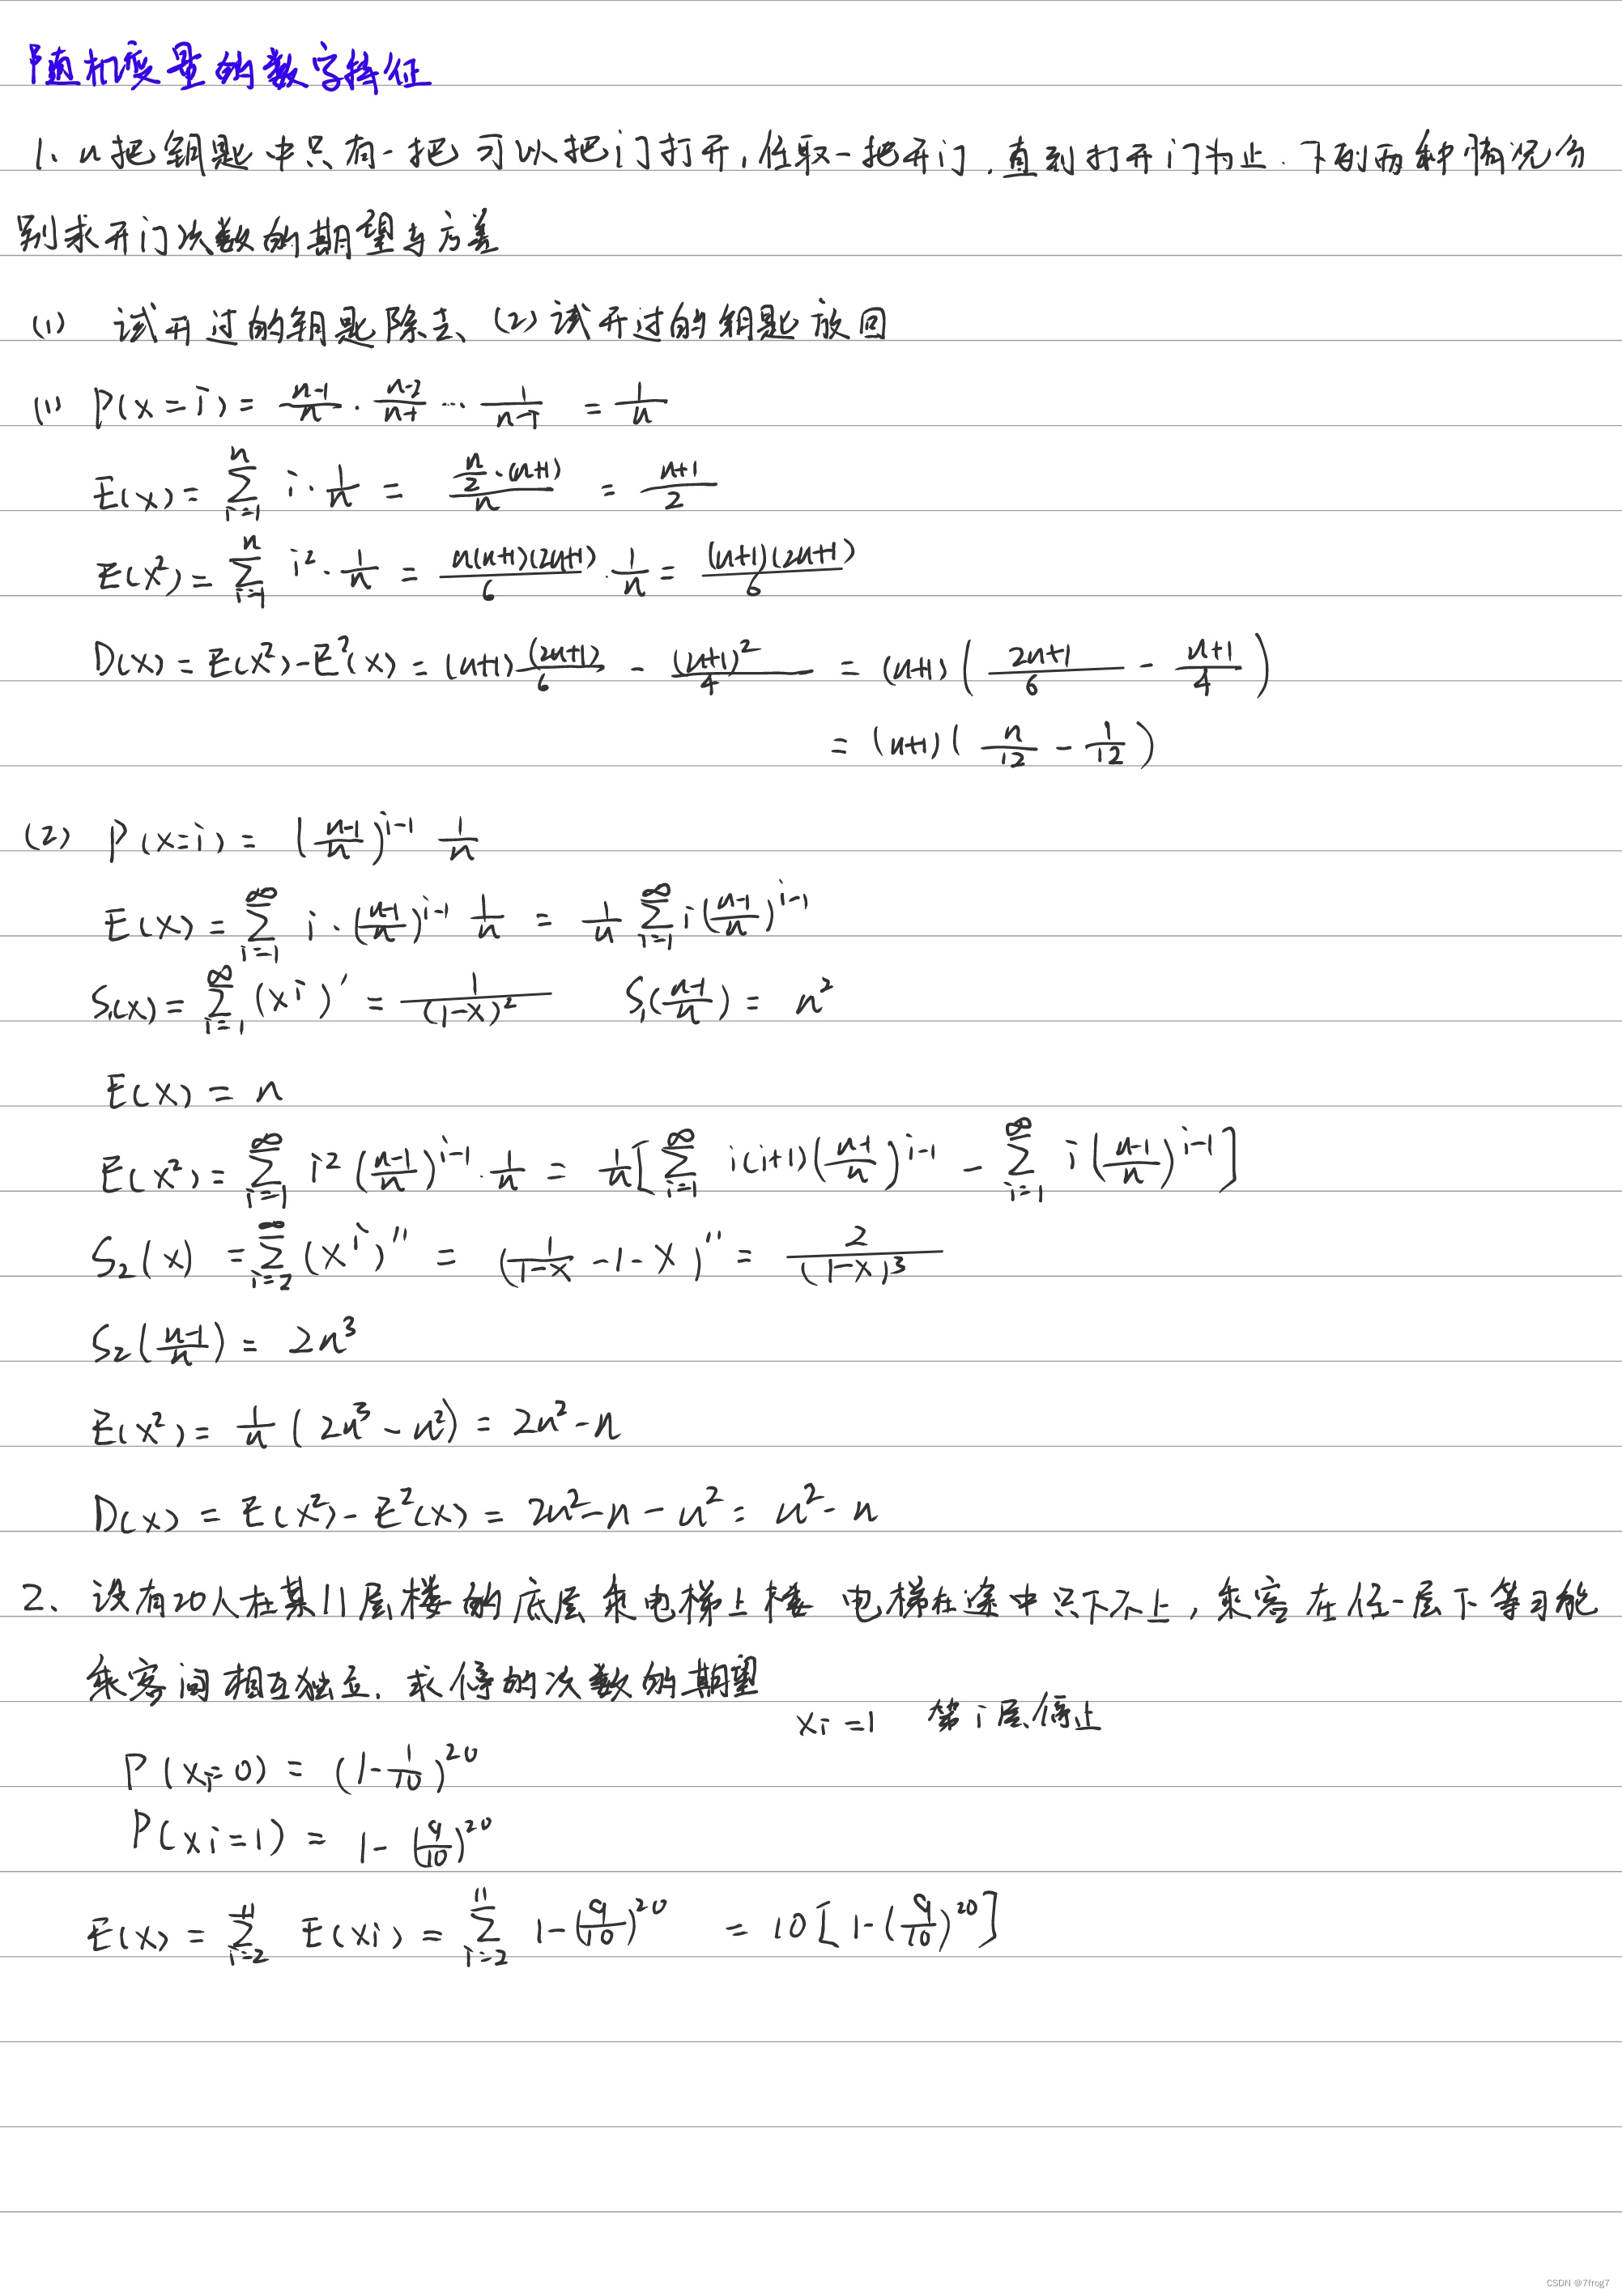 随机变量的数字特征
1、n把钥匙中只有一把可以把门打开，任取一把开门，直到打开门为止．下列两种情况分
别求开门次数的期望与方差
(1) 试开过的钥匙除去、(2) 试开过的钥匙放回
(1) P(x=i) = \frac{n-1}{n} · \frac{n-2}{n-1} ··· \frac{1}{n-i} = \frac{1}{n}
E(x) = \sum_{i=1}^{n} i · \frac{1}{n} = \frac{\frac{n}{2}·(n+1)}{n} = \frac{n+1}{2}
E(x²) = \sum_{i=1}^{n} i² · \frac{1}{n} = \frac{n(n+1)(2n+1)}{6} · \frac{1}{n} = \frac{(n+1)(2n+1)}{6}
D(x) = E(x²) - E²(x) = (n+1)\frac{(2n+1)}{6} - \frac{(n+1)²}{4} = (n+1)(\frac{2n+1}{6} - \frac{n+1}{4})
= (n+1)(\frac{n}{12} - \frac{1}{12})
(2) P(x=i) = (\frac{n-1}{n})^{i-1} \frac{1}{n}
E(x) = \sum_{i=1}^{∞} i · (\frac{n-1}{n})^{i-1} \frac{1}{n} = \frac{1}{n} \sum_{i=1}^{∞} i(\frac{n-1}{n})^{i-1}
S₁(x) = \sum_{i=1}^{∞} (x^i)' = \frac{1}{(1-x)²} S₁(\frac{n-1}{n}) = n²
E(x) = n
E(x²) = \sum_{i=1}^{∞} i² (\frac{n-1}{n})^{i-1} · \frac{1}{n} = \frac{1}{n}[\sum_{i=1}^{∞} i(i+1)(\frac{n-1}{n})^{i-1} - \sum_{i=1}^{∞} i(\frac{n-1}{n})^{i-1}]
S₂(x) = \sum_{i=2}^{∞} (x^i)'' = (\frac{1}{1-x} - 1 - x)'' = \frac{2}{(1-x)³}
S₂(\frac{n-1}{n}) = 2n³
E(x²) = \frac{1}{n}(2n³ - n²) = 2n² - n
D(x) = E(x²) - E²(x) = 2n² - n - n² = n² - n
2、设有20人在某11层楼的底层乘电梯上楼 电梯在途中只下不上，乘客在任一层下等可能
乘客间相互独立．求停的次数的期望
xi = 1 第i层停止
P(xi=0) = (1-\frac{1}{10})^{20}
P(xi=1) = 1 - (\frac{9}{10})^{20}
E(x) = \sum_{i=2}^{11} E(xi) = \sum_{i=2}^{11} 1 - (\frac{9}{10})^{20} = 10[1 - (\frac{9}{10})^{20}]
CSDN @7frog7